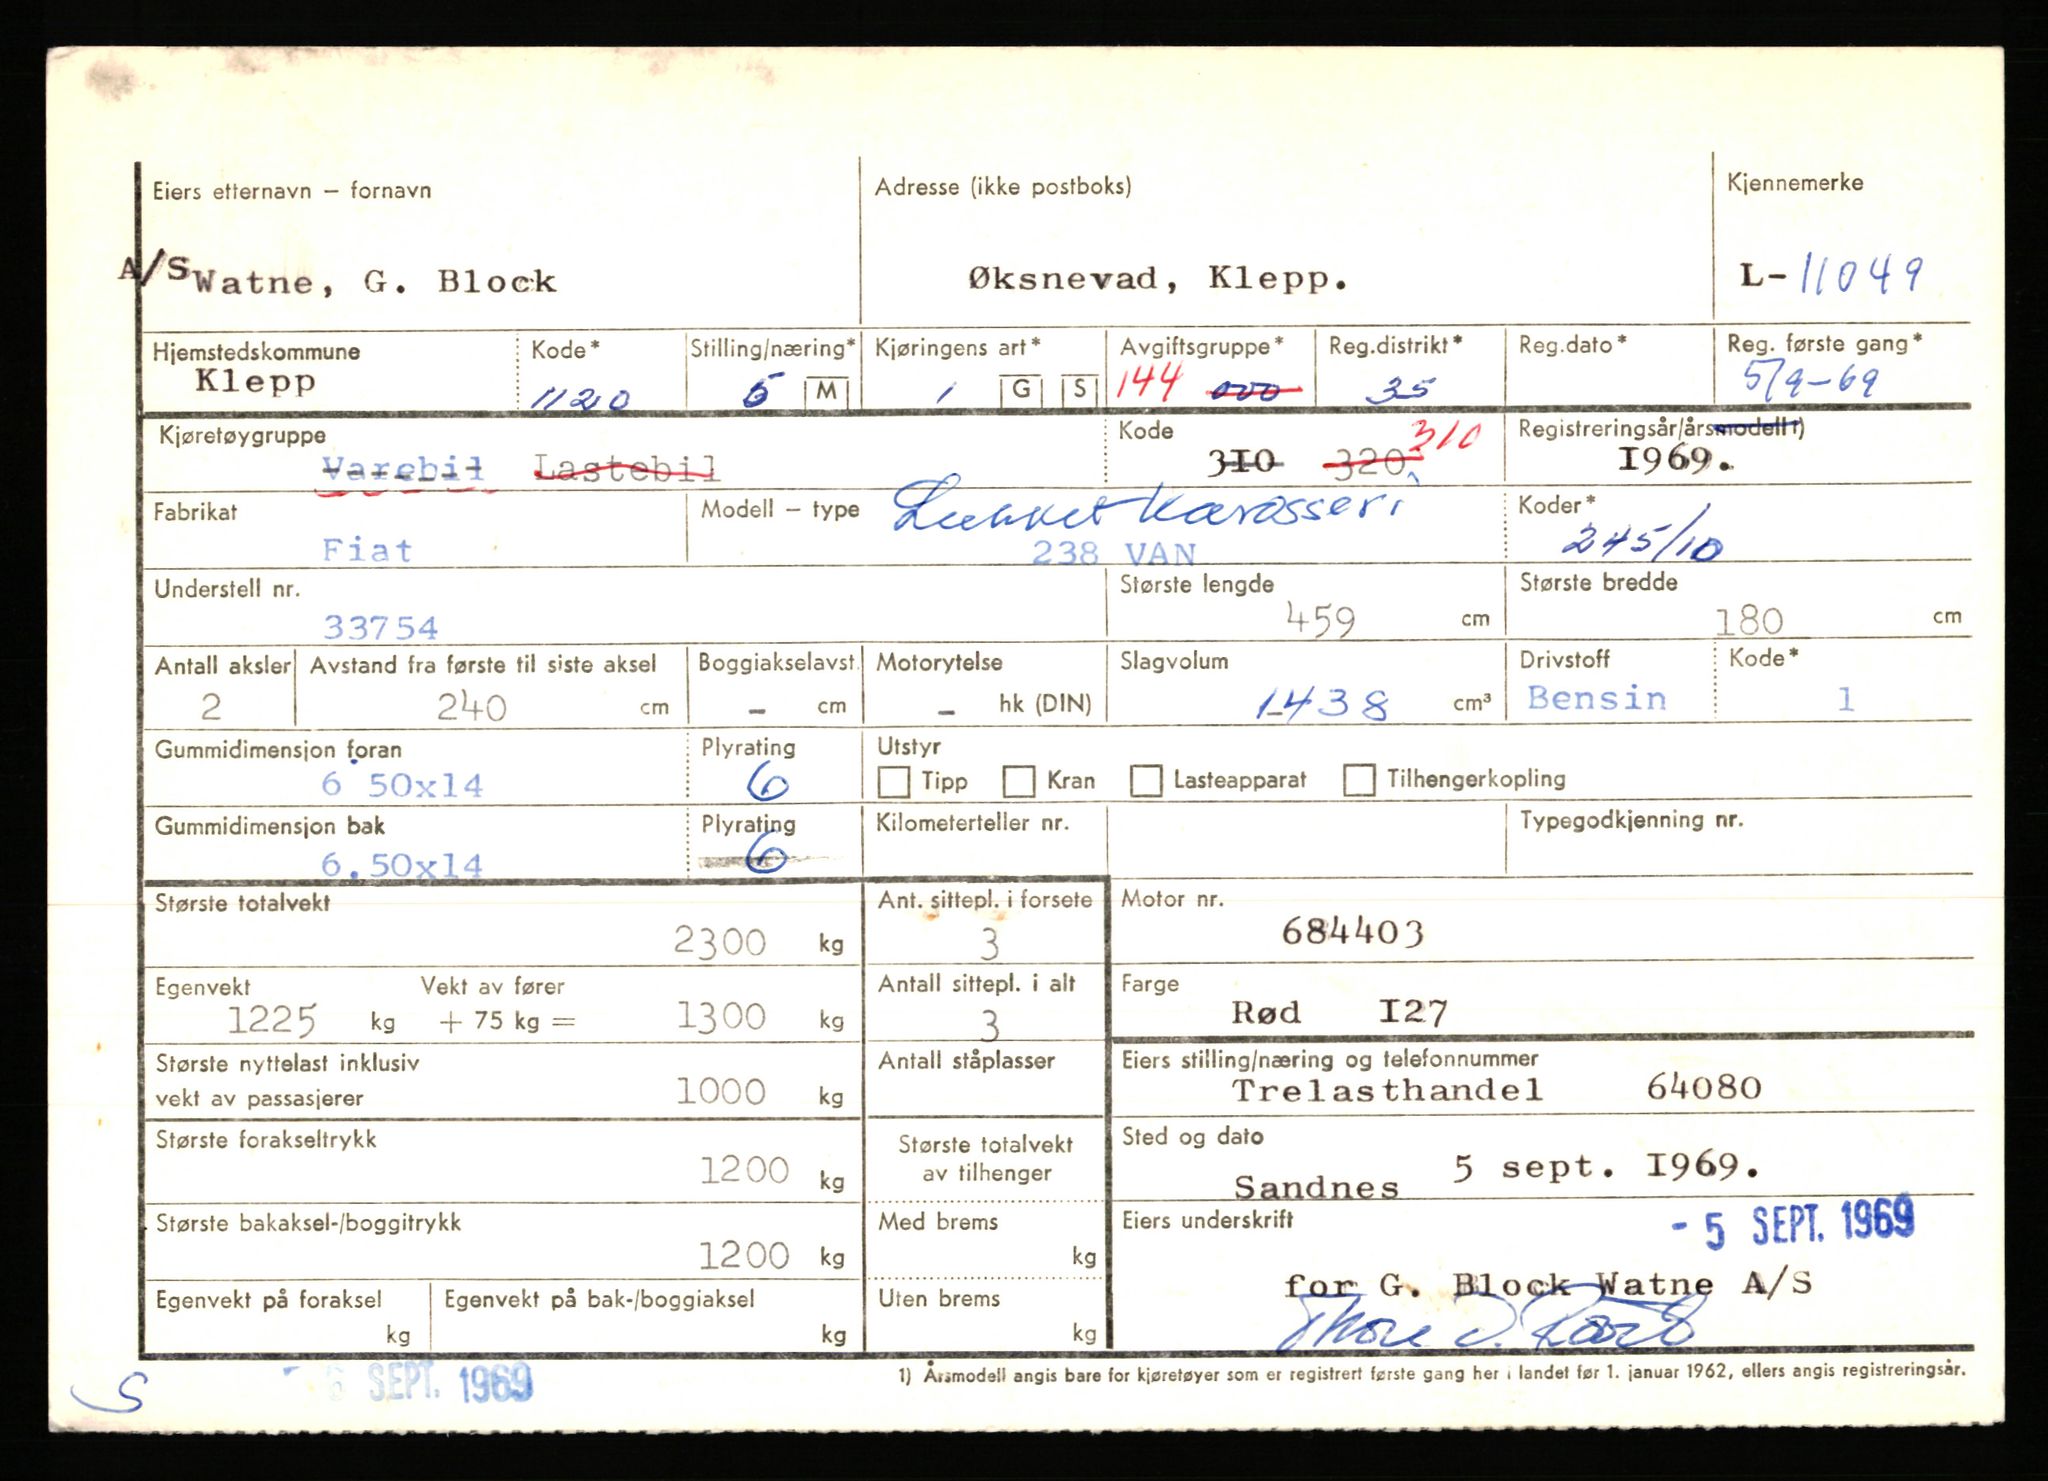 Eiers etternavn – fornavn
Adresse (ikke postboks)
Kjennemerke
A/S Watne, G. Block
Øksnevad, Klepp.
L-11049
Hjemstedskommune
Kode*
Stilling/næring*
Kjøringens art*
Avgiftsgruppe*
Reg.distrikt*
Reg.dato*
Reg. første gang*
Klepp
1120
M
1
G
S
144 000
35
5/9-69
Kjøretøygruppe
Varebil Lastebil
Kode
310 320 310
Registreringsår/årsmodell 1)
1969.
Fabrikat
Fiat
Modell – type
Lukket karosseri
238 VAN
Koder*
245/10
Understell nr.
33754
Største lengde
459 cm
Største bredde
180 cm
Antall aksler
2
Avstand fra første til siste aksel
240 cm
Boggiakselavst.
- cm
Motorytelse
- hk (DIN)
Slagvolum
1438 cm³
Drivstoff
Bensin
Kode*
1
Gummidimensjon foran
6.50x14
Plyrating
6
Utstyr
Tipp Kran Lasteapparat Tilhengerkopling
Gummidimensjon bak
6.50x14
Plyrating
6
Kilometerteller nr.
Typegodkjenning nr.
Største totalvekt
2300 kg
Ant. sittepl. i forsete
3
Motor nr.
684403
Egenvekt
1225 kg
Vekt av fører
+ 75 kg =
1300 kg
Antall sittepl. i alt
3
Farge
Rød I27
Største nyttelast inklusiv
vekt av passasjerer
1000 kg
Antall ståplasser
Eiers stilling/næring og telefonnummer
Trelasthandel 64080
Største forakseltrykk
1200 kg
Største totalvekt
av tilhenger
Sted og dato
Sandnes 5 sept. I969.
Største bakaksel-/boggitrykk
1200 kg
Med brems
kg
Eiers underskrift
- 5 SEPT. 1969
for G. Block Watne A/S
Egenvekt på foraksel
kg
Egenvekt på bak-/boggiaksel
kg
Uten brems
kg
1) Årsmodell angis bare for kjøretøyer som er registrert første gang her i landet før 1. januar 1962, ellers angis registreringsår.
S
- 6 SEPT. 1969